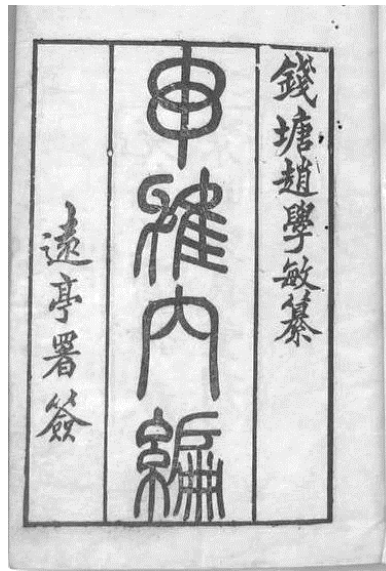 錢塘趙學敏纂
串雅內編
遠亭署簽